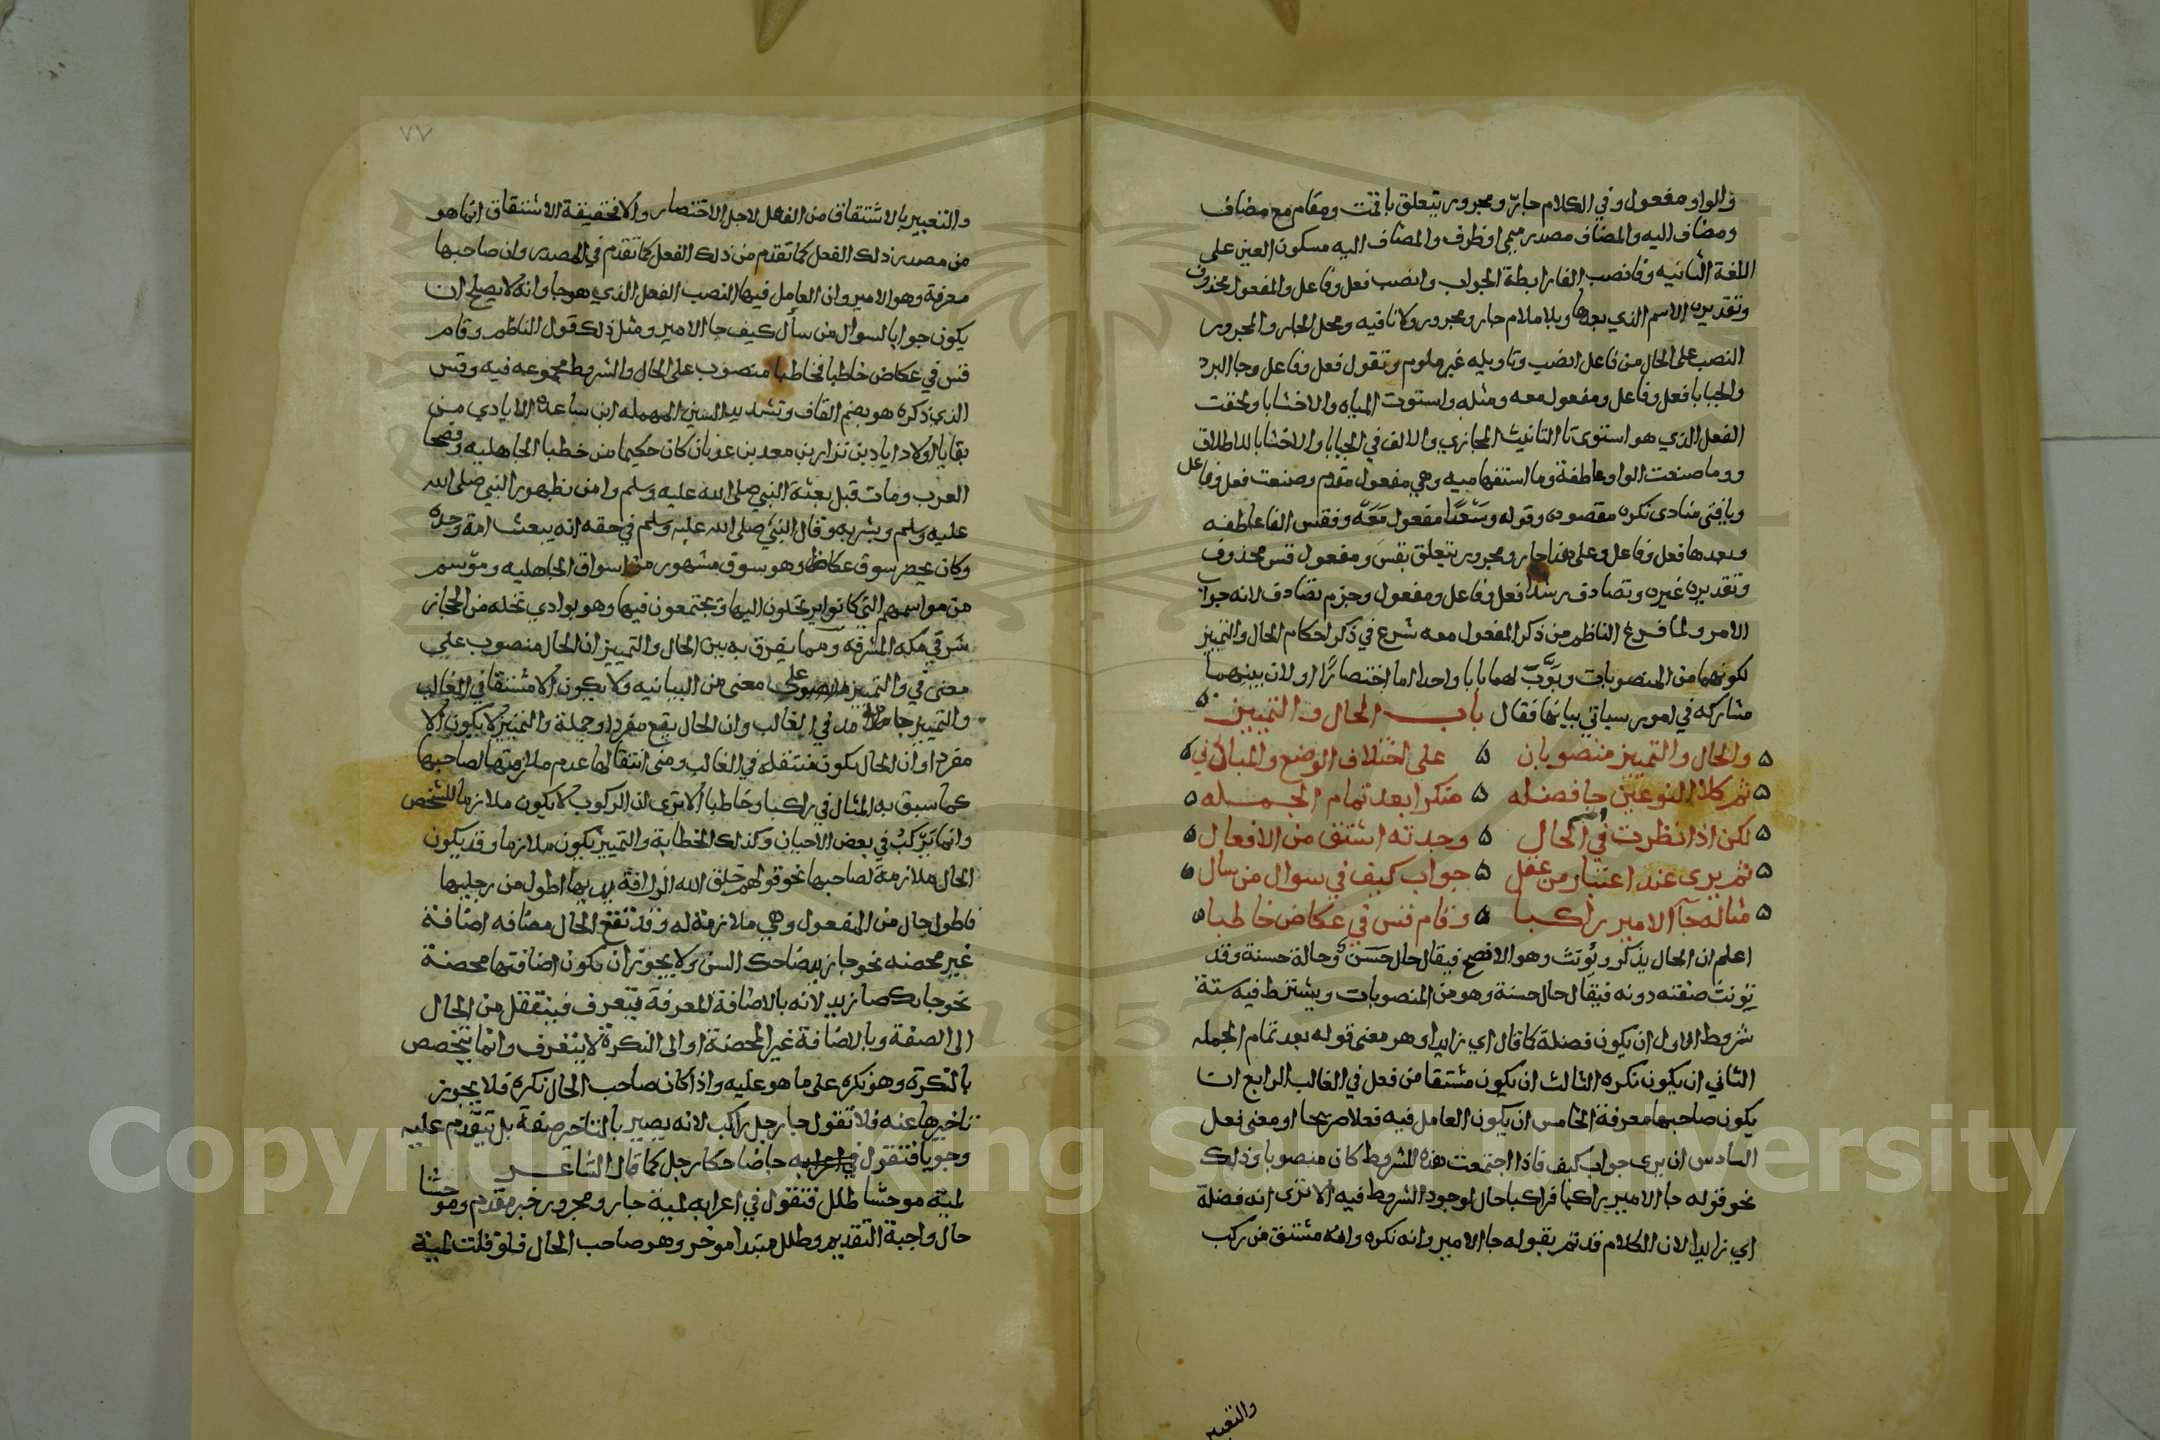 والواو مفعول وفي الكلام جار ومجرور يتعلق باقمت ومقام مع مضاف
ومضاف اليه والمضاف مصدر ميمي او ظرف والمضاف اليه مسكون العين على
اللغة الثانيه وفانصب الفا رابطة الجواب وانصب فعل وفاعل والمفعول محذوف
وتقديره الاسم الذي بعدها وبلا ملام جار ومجرور ولا نافيه ومحل الجار والمجرور
النصب على الحال من فاعل انصب وتاويله غير ملوم وتقول فعل وفاعل وجا البرد
والجبابا فعل وفاعل ومفعول معه ومثله واستوت المياه والاخشابا ولحقت
الفعل الذي هو استوى تا التانيث المجازي والالف في الجبابا والاخشابا للاطلاق
ووما صنعت الواو عاطفة وما استفهاميه وهي مفعول مقدم وصنعت فعل وفاعل
ويافتى منادى نكره مقصوده وقوله وسعدًا مفعول معه وفقس الفا عاطفه
وبعدها فعل وفاعل وعلى هذا جار ومجرور يتعلق بقس ومفعول قس محذوف
وتقديره غيره وتصادف رشدا فعل وفاعل ومفعول وجزم تصادف لانه جواب
الامر ولما فرغ الناظم من ذكر المفعول معه شرع في ذكر احكام الحال والتمييز
لكونهما من المنصوبات وبَوَّبَ لهما بابا واحدا اما اختصارًا او لان بينهما
مشاركه في امور سياتي بيانها فقال باب الحال والتمييز
والحال والتمييز منصوبان ٥ على اختلاف الوضع والمباني
ثم كلا النوعين جا فضله ٥ منكرا بعد تمام الجمله
لكن اذا نظرت في اسم الحال ٥ وجدته اشتق من الافعال
ثم يرى عند اعتبار من عقل ٥ جواب كيف في سوال من سال
مثاله جآ الامير راكبا ٥ وقام قس في عكاض خاطبا
اعلم ان الحال يذكر ويؤنث وهو الافصح فيقال حال حَسَنٌ وحالة حسنة وقد
تؤنث صفته دونه فيقال حال حسنة وهو من المنصوبات ويشترط فيه ستة
شروط الاول ان يكون فضلة كما قال اي زايدا وهو معنى قوله بعد تمام الجمله
الثاني ان يكون نكره الثالث ان يكون مشتقا من فعل في الغالب الرابع ان
يكون صاحبها معرفة الخامس ان يكون العامل فيه فعلا صريحا او معنى فعل
السادس ان يرى جواب كيف فاذا اجتمعت هذه الشروط كان منصوبا وذلك
نحو قوله جا الامير راكبا فراكبا حال لوجود الشروط فيه الا ترى انه فضلة
اي زايدا لان الكلام قد تم بقوله جا الامير وانه نكره وانه مشتق من ركب
والتعبير
٧٧
والتعبير بالاشتقاق من الفعل لاجل الاختصار والا فحقيقة الاشتقاق انما هو
من مصدر ذلك الفعل كما تقدم من ذلك الفعل كما تقدم في المصدر وان صاحبها
معرفة وهو الامير وان العامل فيها النصب الفعل الذي هو جا وانه لا يصلح ان
يكون جوابا لسوال من سأل كيف جا الامير ومثل ذلك قول الناظم وقام
قس في عكاض خاطبا فخاطبا منصوب على الحال والشروط مجموعه فيه وقس
الذي ذكره هو بضم القاف وتشديد السين المهمله ابن ساعده الايادي من
بقايا اولاد اياد بن نزار بن معد بن عدنان كان حكيما من خطبا الجاهليه وفصحا
العرب ومات قبل بعثة النبي صلى الله عليه وسلم وامن بظهور النبي صلى الله
عليه وسلم وبشر به وقال النبي صلى الله عليه وسلم في حقه انه يبعث امة وحده
وكان يحضر سوق عكاظ وهو سوق مشهور من اسواق الجاهليه وموسم
من مواسمهم التي كانوا يرتحلون اليها ويجتمعون فيها وهو بوادي نخله من الحجاز
شرقي مكه المشرفه ومما يفرق به بين الحال والتمييز ان الحال منصوب على
معنى في والتمييز على معنى من البيانيه ولا يكون الا مشتقا في الغالب
والتمييز جامد في الغالب وان الحال يقع مفردا وجملة والتمييز لا يكون الا
مفردا وان الحال يكون منتقله في الغالب ومعنى انتقالها عدم ملازمتها لصاحبها
كما سبق به المثال في راكبا وخاطبا الا ترى ان الركوب لا يكون ملازما للشخص
وانما يَرْكَبُ في بعض الاحيان وكذلك الخطابة والتمييز يكون ملازما وقد يكون
الحال ملازمة لصاحبها نحو قولهم خلق الله الزرافة يديها اطول من رجليها
فاطول حال من المفعول وهي ملازمة له وقد تقع الحال مضافه اضافة
غير محضه نحو جا زيد ضاحك السن ولا يجوز ان تكون اضافتها محضة
نحو جا زيد لانه بالاضافة المعرفة يتعرف فينتقل من الحال
الى الصفة وبالاضافة غير المحضة او الى النكرة لا يتعرف وانما يتخصص
بالنكرة وهو نكره على ما هو عليه واذا كان صاحب الحال نكره فلا يجوز
تاخيرها عنه فلا تقول جا رجل راكب لانه يصير بالتاخير صفة بل تتقدم عليه
وجوبا فتقول جا ضاحكا رجل كما قال الشاعر
لمية موحشا طلل فتقول في اعرابه لمية جار ومجرور خبر مقدم وموحشا
حال واجبة التقديم وطلل مبتدا موخر وهو صاحب الحال فلو قلت لمية